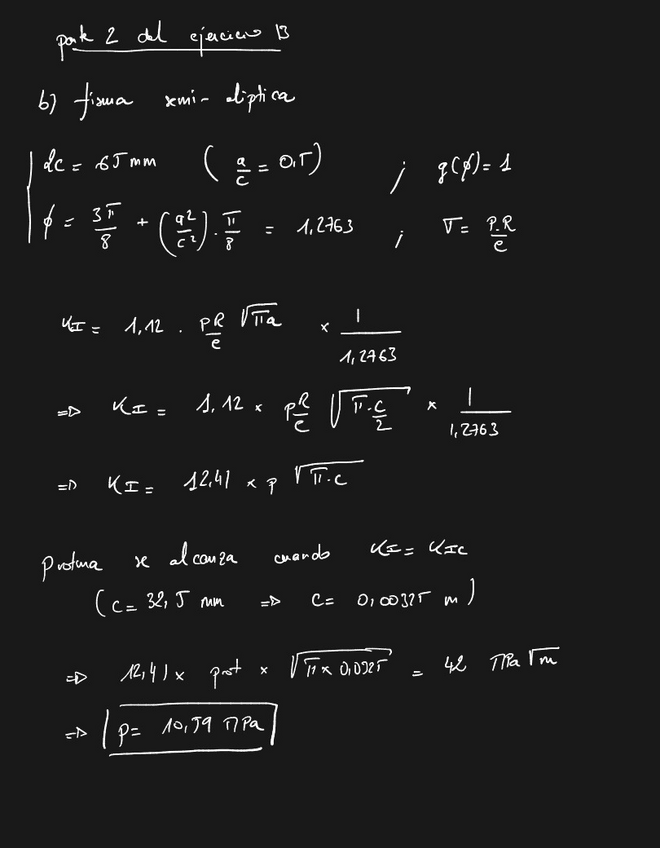 parte 2 del ejercicio 13
b) fisura semi-eliptica
2c = 65 mm ( a/c = 0,5 ) ; g(ϕ) = 1
ϕ = 3π/8 + (a²/c²) . π/8 = 1,2763 ; σ = P.R/e
KI = 1,12 . PR/e √(πa) × 1/1,2763
=> KI = 1,12 × PR/e √(π.c/2) × 1/1,2763
=> KI = 12,41 × p √(π.c)
Protura se alcanza cuando KI = KIC
( c = 32,5 mm => c = 0,00325 m )
=> 12,41 × prot × √(π × 0,0325) = 42 MPa √m
=> p = 10,59 MPa